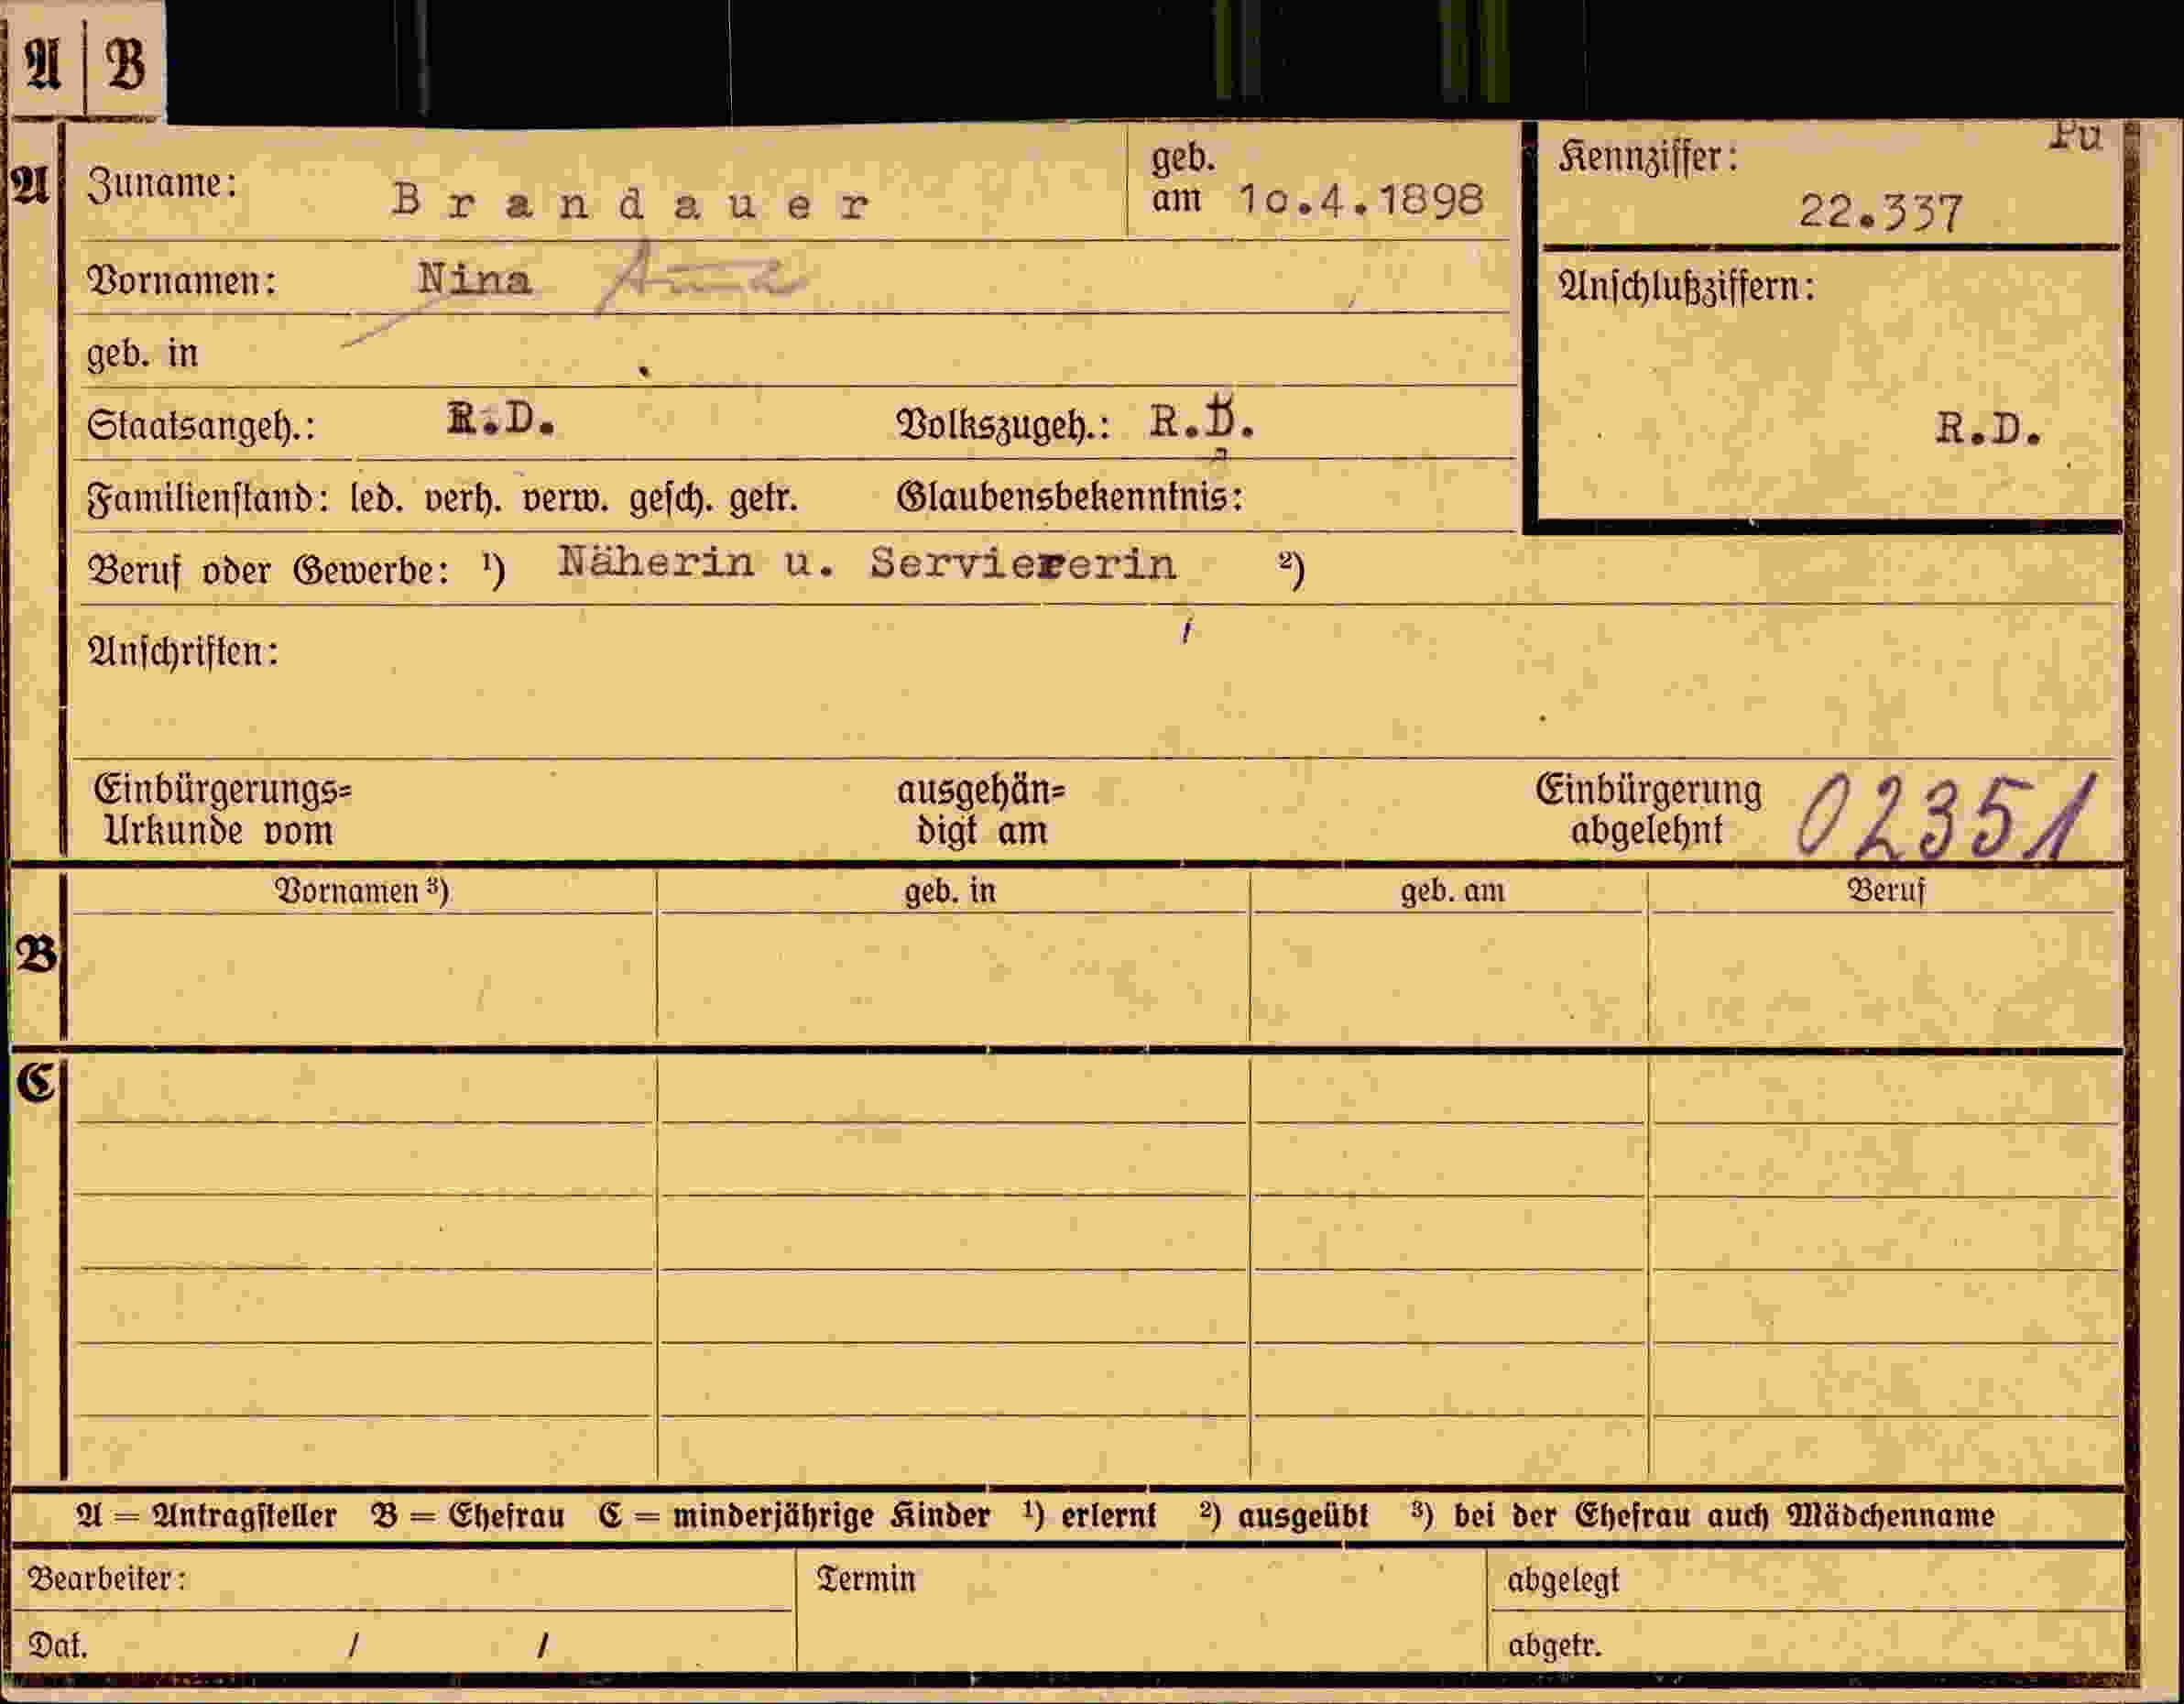 A | B
Pu
A
Zuname: Brandauer geb. am 10.4.1898
Kennziffer: 22.337
Vornamen: Nina
Anschlußziffern:
geb. in
Staatsangeh.: R.D. Volkszugeh.: R.D.
R.D.
Familienstand: led. verh. verw. gesch. getr. Glaubensbekenntnis:
Beruf oder Gewerbe: ¹) Näherin u. Serviererin ²)
Anschriften:
Einbürgerungs=
Urkunde vom
ausgehän=
digt am
Einbürgerung
abgelehnt 02351
Vornamen ³) geb. in geb. am Beruf
B
C
A = Antragsteller B = Ehefrau C = minderjährige Kinder ¹) erlernt ²) ausgeübt ³) bei der Ehefrau auch Mädchenname
Bearbeiter: Termin abgelegt
Dat. / / abgetr.